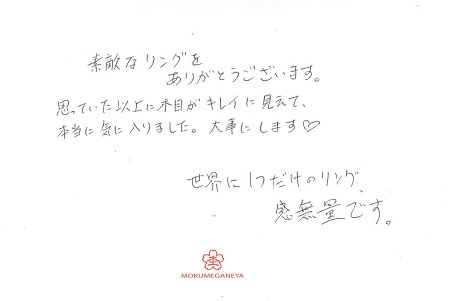 素敵なリングを
ありがとうございます。
思っていた以上に木目がキレイに見えて、
本当に気に入りました。大事にします♡
世界に1つだけのリング、
感無量です。
MOKUMEGANEYA